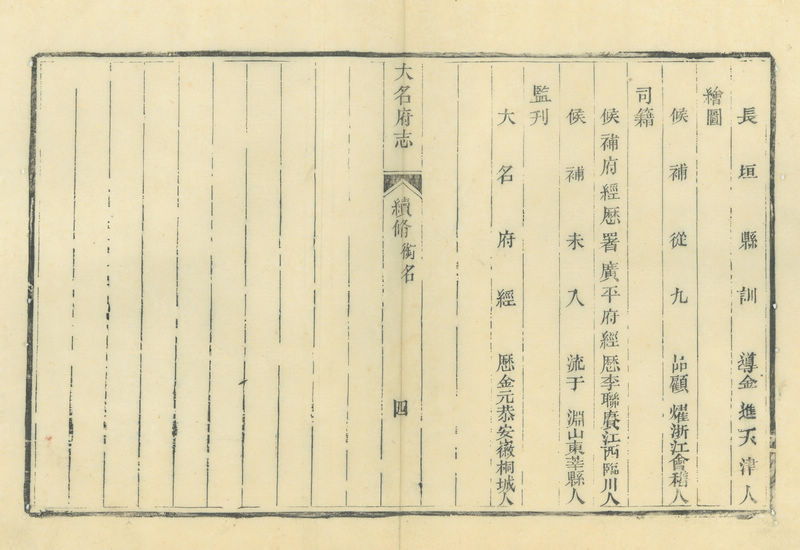 長垣縣訓導金進天津人
繪圖
候補從九品顧燿浙江會稽人
司籍
候補府經歷署廣平府經歷李聯賡江西臨川人
候補未入流于淵山東莘縣人
監刋
大名府經歷金元恭安徽桐城人
大名府志
續脩銜名
四